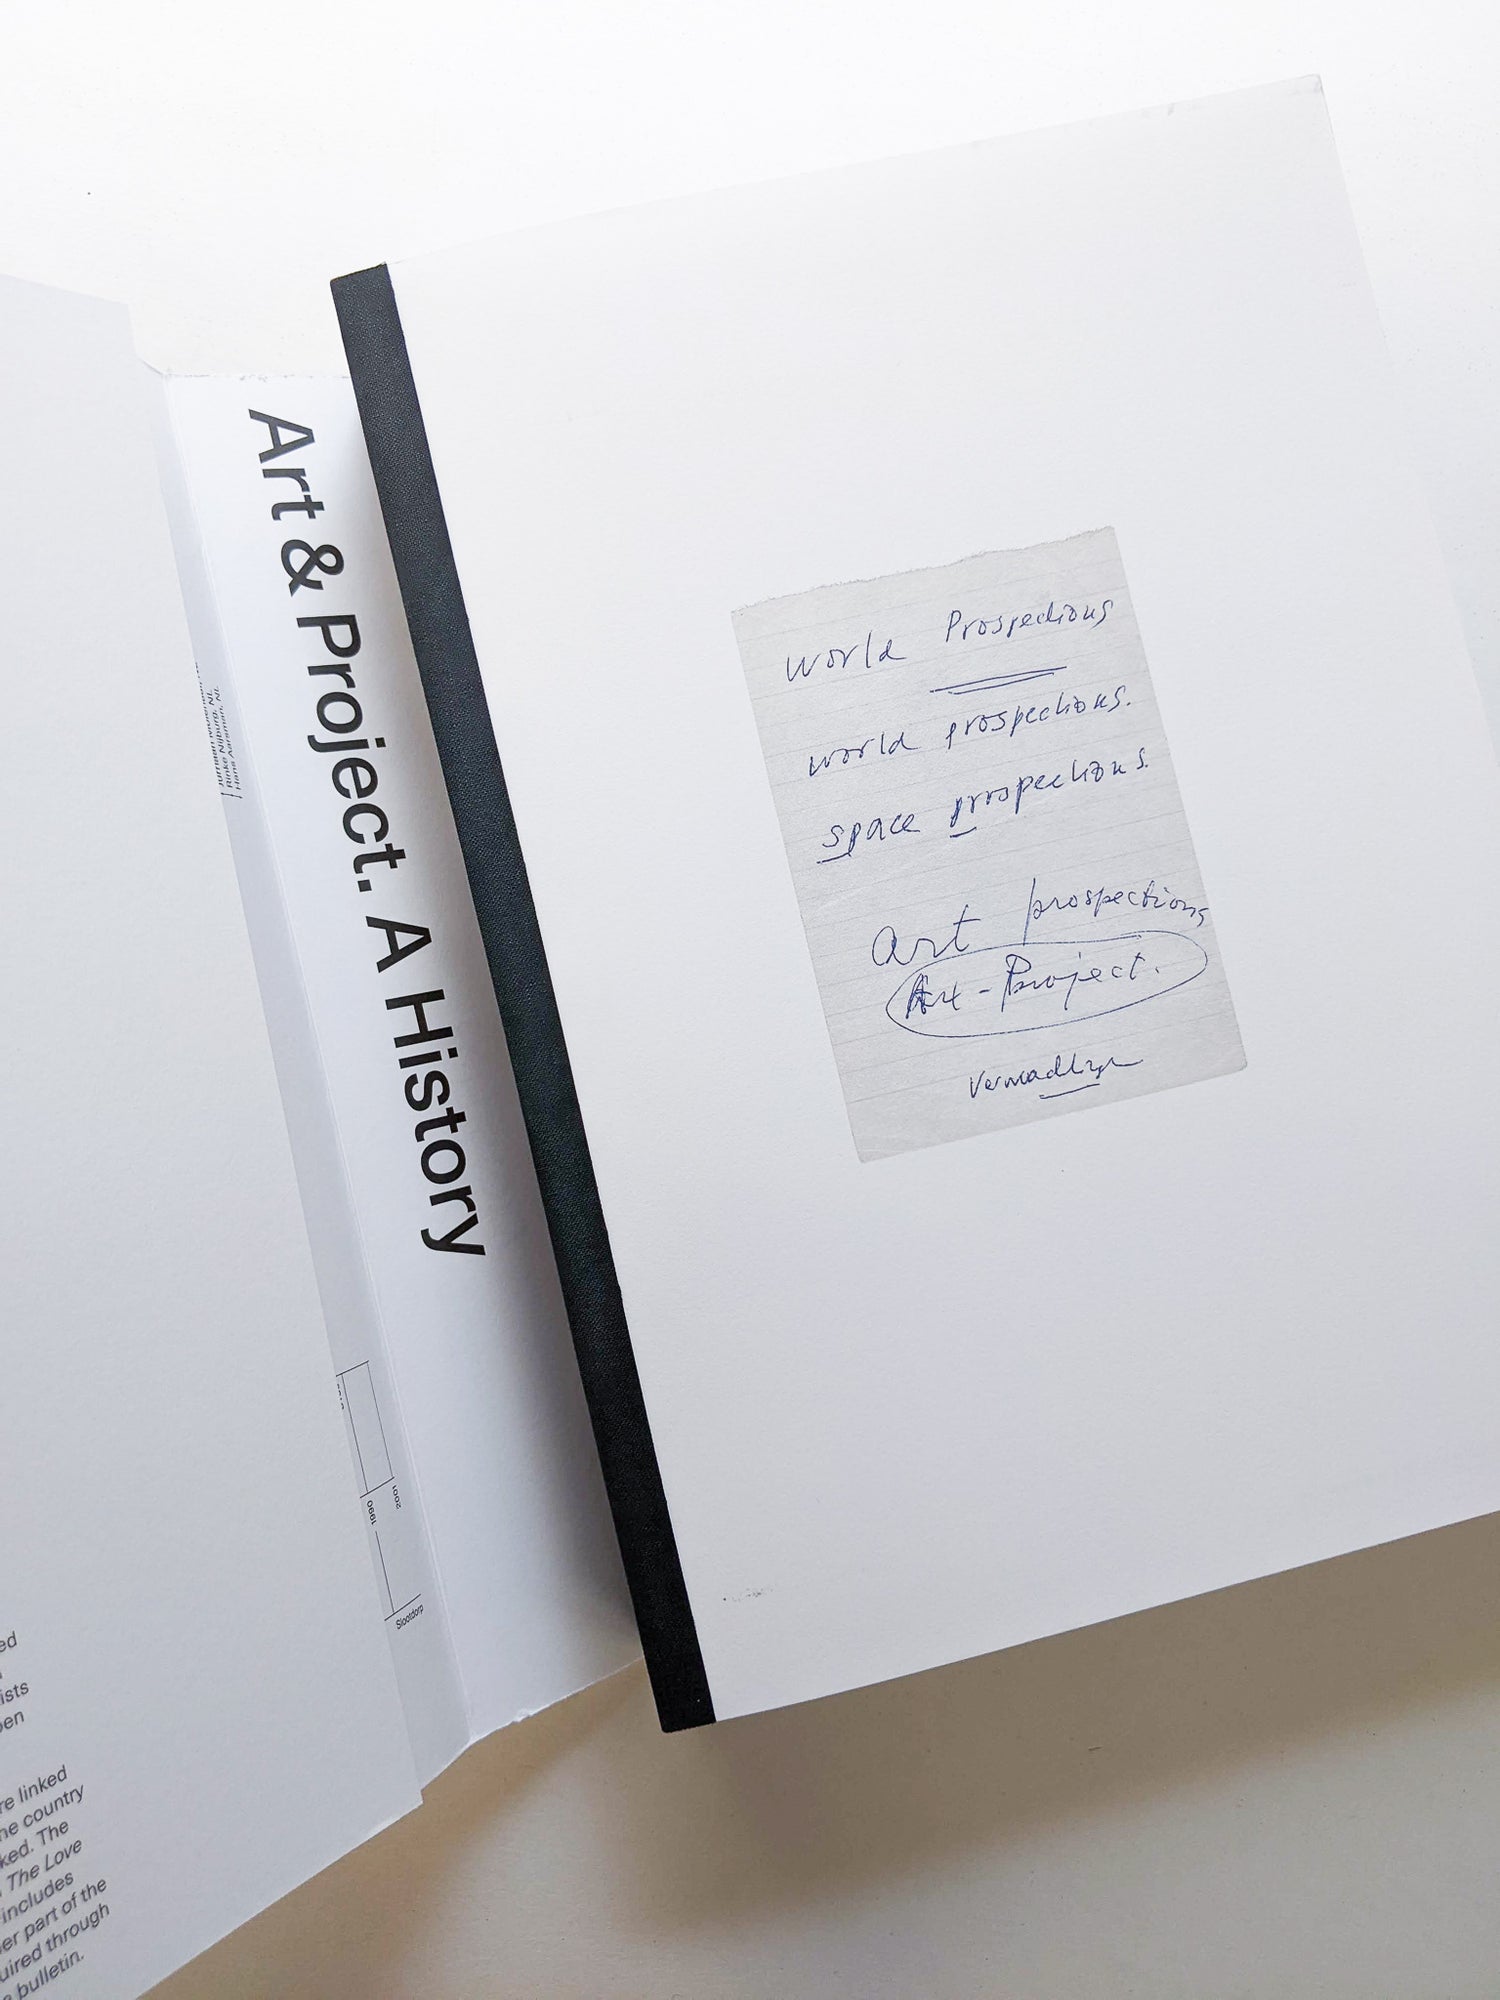 Art & Project. A History
Rinke Nijburg, NL
Hans Aarsman, NL
2001
1990
Slootdorp
ists
re linked
he country
ked. The
The Love
includes
er part of the
uired through
bulletin.
World Prospections
world prospections.
space prospections.
Art prospections
Art-Project.